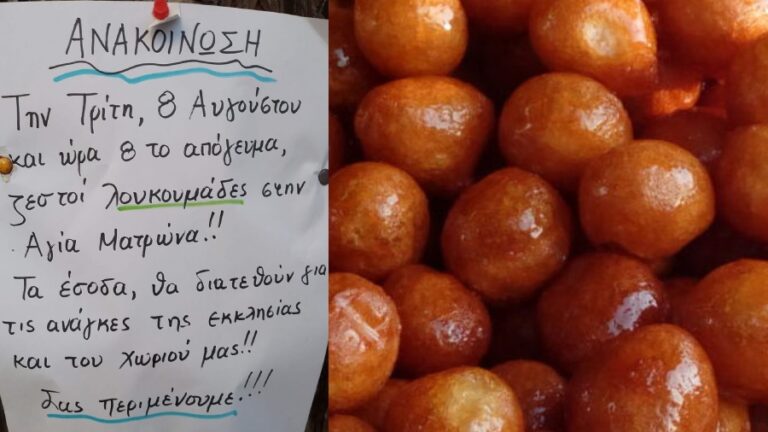 ΑΝΑΚΟΙΝΩΣΗ
Την Τρίτη, 8 Αυγούστου
και ώρα 8 το απόγευμα,
ζεστοί λουκουμάδες στην
Αγία Ματρώνα!!
Τα έσοδα, θα διατεθούν για
τις ανάγκες της εκκλησίας
και του χωριού μας!!
Σας περιμένουμε!!!